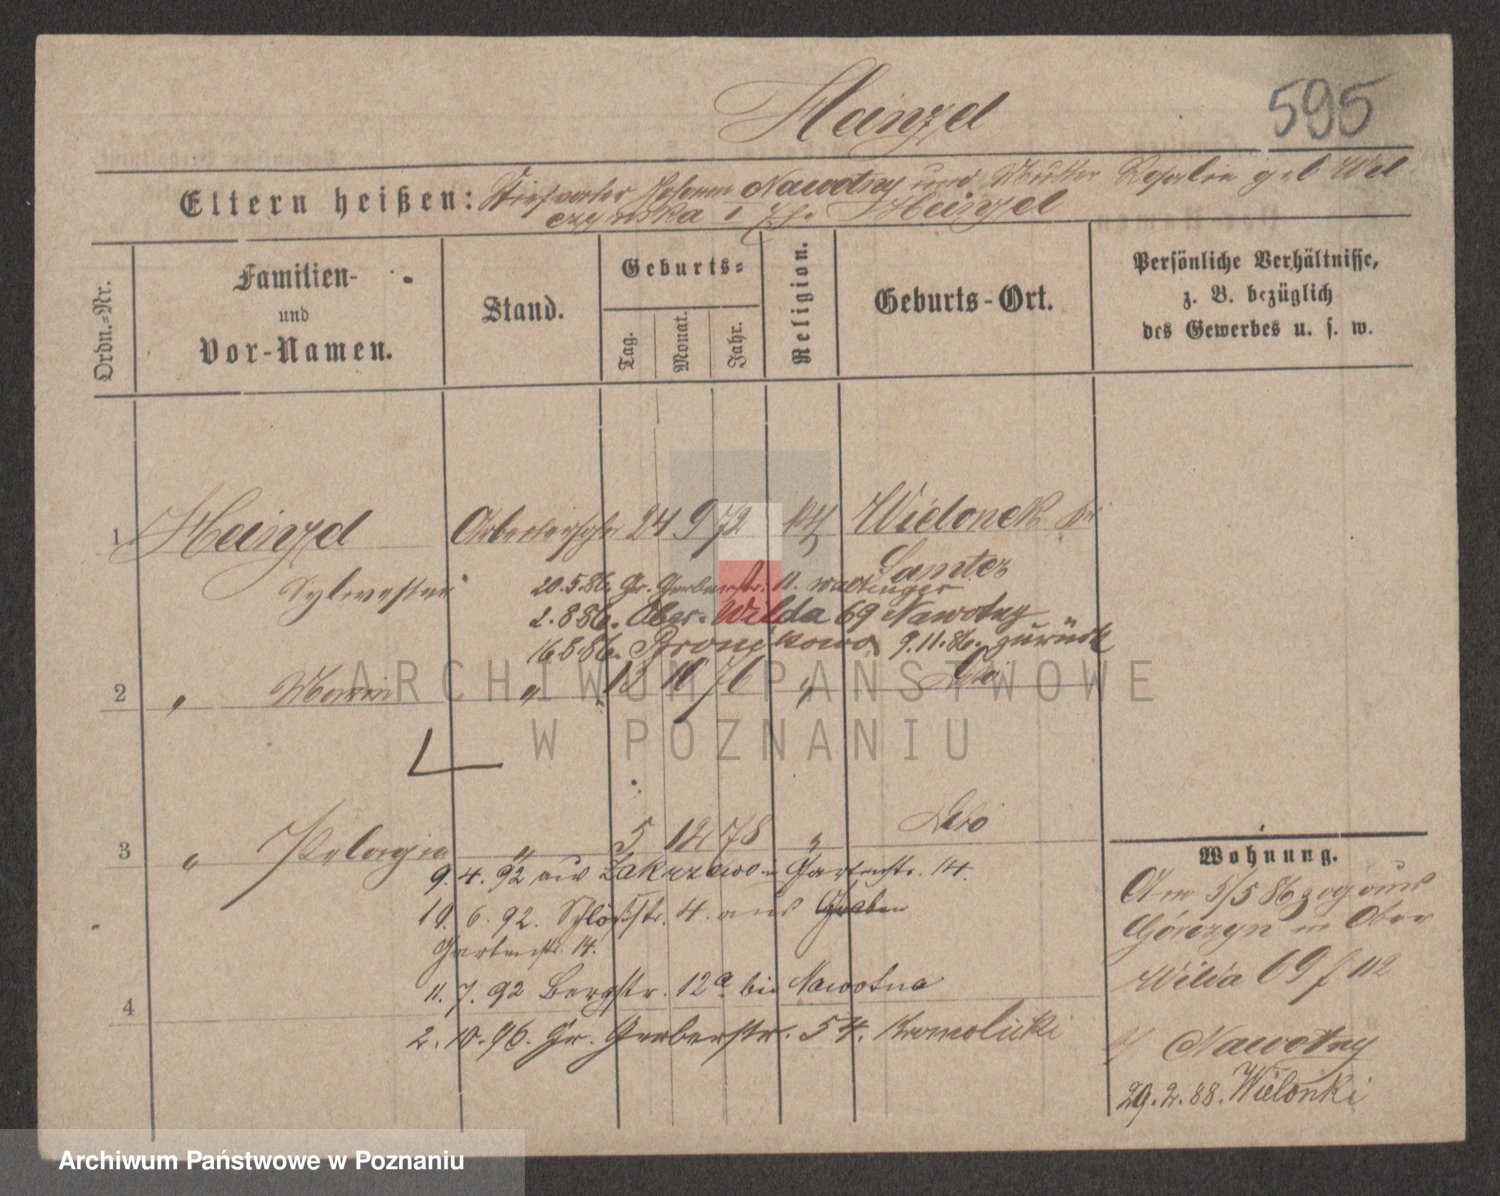 Heinzel
595
Eltern heißen: Stiefvater Johann Nawotny und Mutter Rosalie geb Wel
czynska 1 Ehe Heinzel
Ordn.-Nr.
Familien-
und
Vor-Namen.
Stand.
Geburts-
Tag.
Monat.
Jahr.
Religion.
Geburts-Ort.
Persönliche Verhältnisse,
z. B. bezüglich
des Gewerbes u. s. w.
1 Heinzel 24 9 72 kth Wielonek bei
Sylvester Samter
20.5.86. Gr. Gerberstr. 11.
2.8 86. Ober-Wilda 69 Nawotny
16.8.86. 9.11.86. zurück
2 " " 13 10 76 " Dto
3 " Pelagia " 5 12 78 " Dto
9. 4. 92 aus Zakrzewo Gartenstr. 14.
19. 6. 92. Schloßstr. 4. aus Graben
Gartenstr. 14.
11. 7. 92 Bergstr. 12a bei Nawotna
4
2. 10. 96. Gr. Gerberstr. 54. Kromolicki
Wohnung.
Am 5/5 86 zog aus
Górczyn in Ober
Wilda 69
b/ Nawotny
29. 2. 88. Wielonki
ARCHIWUM PAŃSTWOWE
W POZNANIU
Archiwum Państwowe w Poznaniu